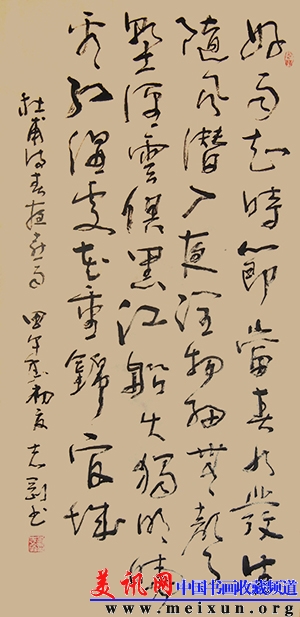 好雨知時節當春乃發生
隨風潛入夜潤物細無聲
野徑雲俱黑江船火獨明曉
看紅濕處花重錦官城
杜甫詩春夜喜雨 甲午初夏 志剛書
美讯网 中国书画收藏频道
www.meixun.org